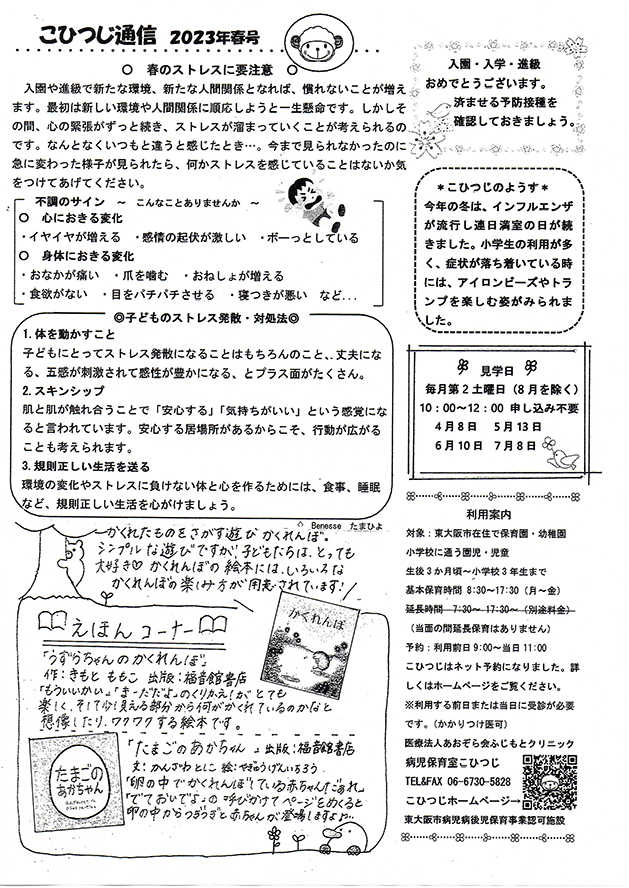 こひつじ通信 2023年春号
〇 春のストレスに要注意 〇
入園や進級で新たな環境、新たな人間関係となれば、慣れないことが増え
ます。最初は新しい環境や人間関係に順応しようと一生懸命です。しかしそ
の間、心の緊張がずっと続き、ストレスが溜まっていくことが考えられるの
です。なんとなくいつもと違うと感じたとき…。今まで見られなかったのに
急に変わった様子が見られたら、何かストレスを感じていることはないか気
をつけてあげてください。
不調のサイン ～ こんなことありませんか ～
〇 心におきる変化
・イヤイヤが増える ・感情の起伏が激しい ・ボーっとしている
〇 身体におきる変化
・おなかが痛い ・爪を噛む ・おねしょが増える
・食欲がない ・目をパチパチさせる ・寝つきが悪い など...
◎子どものストレス発散・対処法◎
1.体を動かすこと
子どもにとってストレス発散になることはもちろんのこと、、丈夫にな
る、五感が刺激されて感性が豊かになる、とプラス面がたくさん。
2.スキンシップ
肌と肌が触れ合うことで「安心する」「気持ちがいい」という感覚にな
ると言われています。安心する居場所があるからこそ、行動が広がる
ことも考えられます。
3.規則正しい生活を送る
環境の変化やストレスに負けない体と心を作るためには、食事、睡眠
など、規則正しい生活を心がけましょう。
Benesse たまひよ
かくれたものをさがす遊び かくれんぼ。
シンプルな遊びですが！子どもたちは、とっても
大好き♡ かくれんぼの絵本には、いろいろな
かくれんぼの楽しみ方が用意されています！
えほんコーナー
かくれんぼ
「うずらちゃんのかくれんぼ」
作：きもと ももこ 出版：福音館書店
「もういいかい」「まーだだよ」のくりかえしがとても
楽しく、そして少し見える部分から何がかくれているのかなと
想像したり、ワクワクする絵本です。
たまごの
あかちゃん
「たまごのあかちゃん 」出版：福音館書店
文：かんざわとしこ 絵：やぎゅうげんいちろう
「卵の中でかくれんぼしている赤ちゃんはだあれ
「でておいでよ」の呼びかけでページをめくると
卵の中からつぎつぎと赤ちゃんが登場しますよ…
入園・入学・進級
おめでとうございます。
済ませる予防接種を
確認しておきましょう。
＊こひつじのようす＊
今年の冬は、インフルエンザ
が流行し連日満室の日が続
きました。小学生の利用が多
く、症状が落ち着いている時
には、アイロンビーズやトラ
ンプを楽しむ姿がみられま
した。
見学日
毎月第2土曜日（8月を除く）
10：00～12：00 申し込み不要
4月8日 5月13日
6月10日 7月8日
利用案内
対象：東大阪市在住で保育園・幼稚園
小学校に通う園児・児童
生後3か月頃～小学校3年生まで
基本保育時間 8:30～17:30（月～金）
延長時間 7:30～ 17:30～（別途料金）
（当面の間延長保育はありません）
予約：利用前日9:00～当日11:00
こひつじはネット予約になりました。詳
しくはホームページをご覧ください。
※利用する前日または当日に受診が必要
です。（かかりつけ医可）
医療法人あおぞら会ふじもとクリニック
病児保育室こひつじ
TEL&FAX 06-6730-5828
こひつじホームページ→
東大阪市病児病後児保育事業認可施設